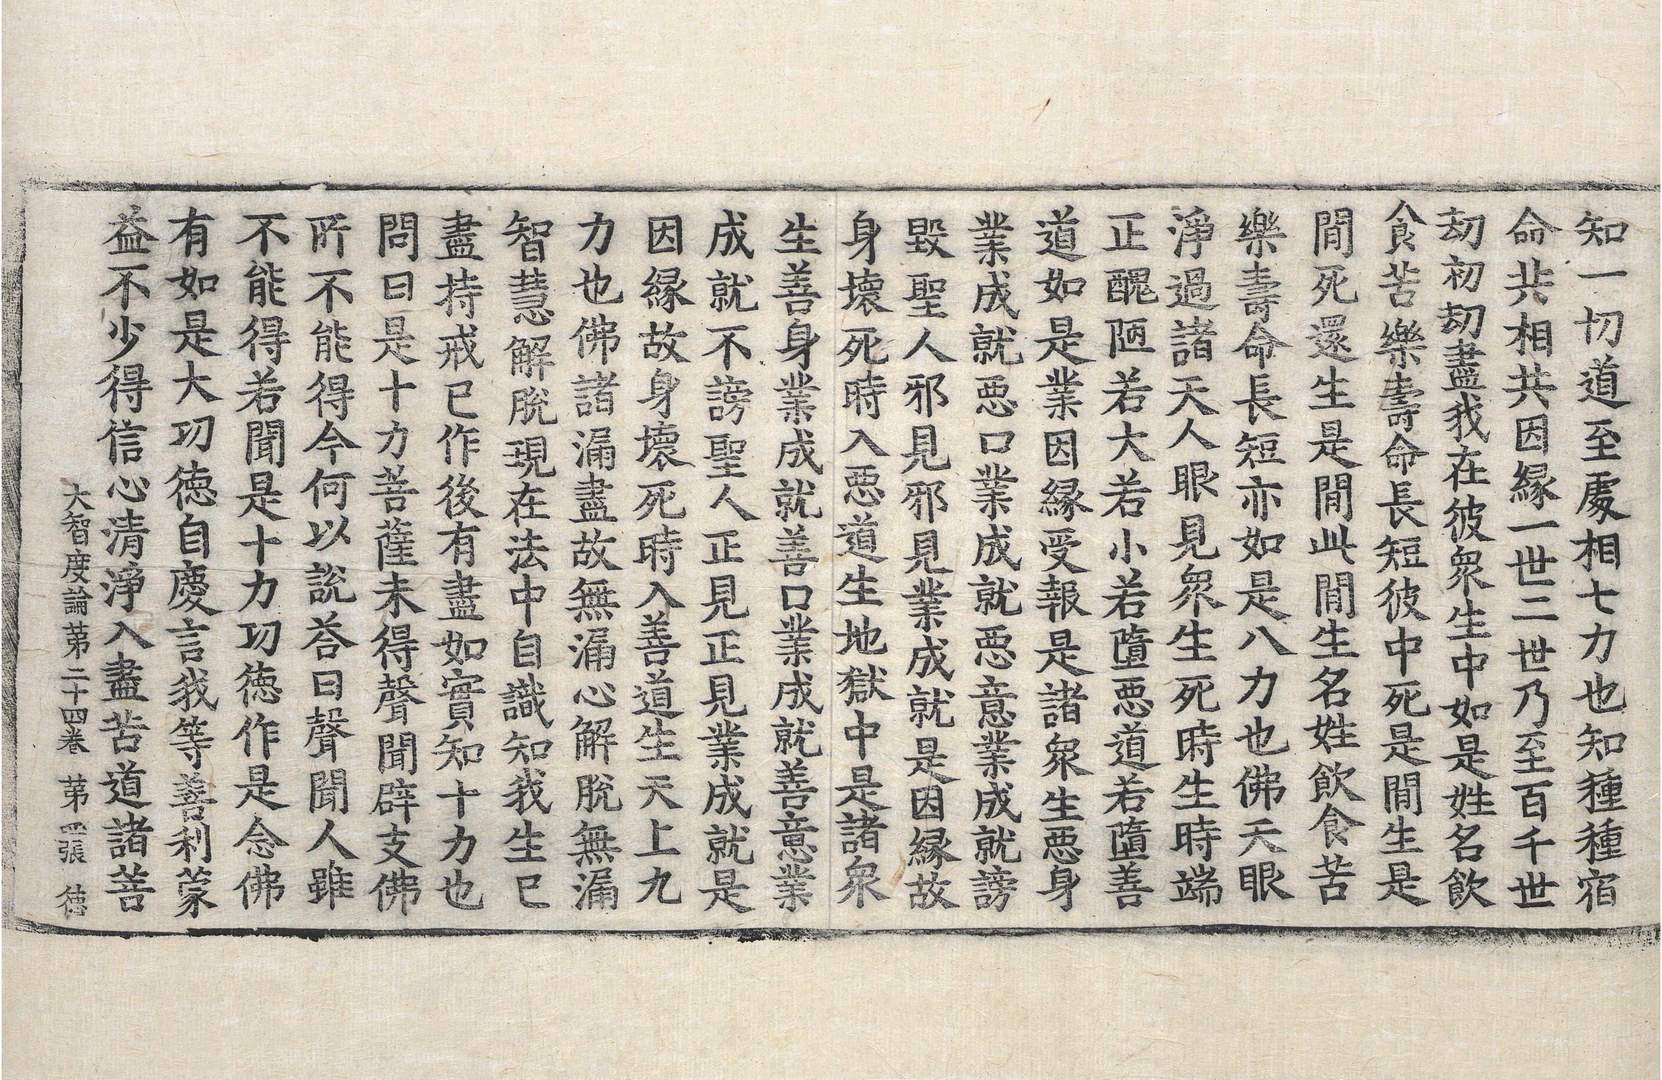 知一切道至處相七力也知種種宿
命共相共因緣一世二世乃至百千世
劫初劫盡我在彼衆生中如是姓名飲
食苦樂壽命長短彼中死是閒生是
閒死還生是閒此閒生名姓飲食苦
樂壽命長短亦如是八力也佛天眼
淨過諸天人眼見衆生死時生時端
正醜陋若大若小若墮惡道若墮善
道如是業因緣受報是諸衆生惡身
業成就惡口業成就惡意業成就謗
毀聖人邪見邪見業成就是因緣故
身壞死時入惡道生地獄中是諸衆
生善身業成就善口業成就善意業
成就不謗聖人正見正見業成就是
因緣故身壞死時入善道生天上九
力也佛諸漏盡故無漏心解脫無漏
智慧解脫現在法中自識知我生已
盡持戒已作後有盡如實知十力也
問曰是十力菩薩未得聲聞辟支佛
所不能得今何以說荅曰聲聞人雖
不能得若聞是十力功徳作是念佛
有如是大功徳自慶言我等善利蒙
益不少得信心清淨入盡苦道諸菩
大智度論第二十四卷 第四張 徳